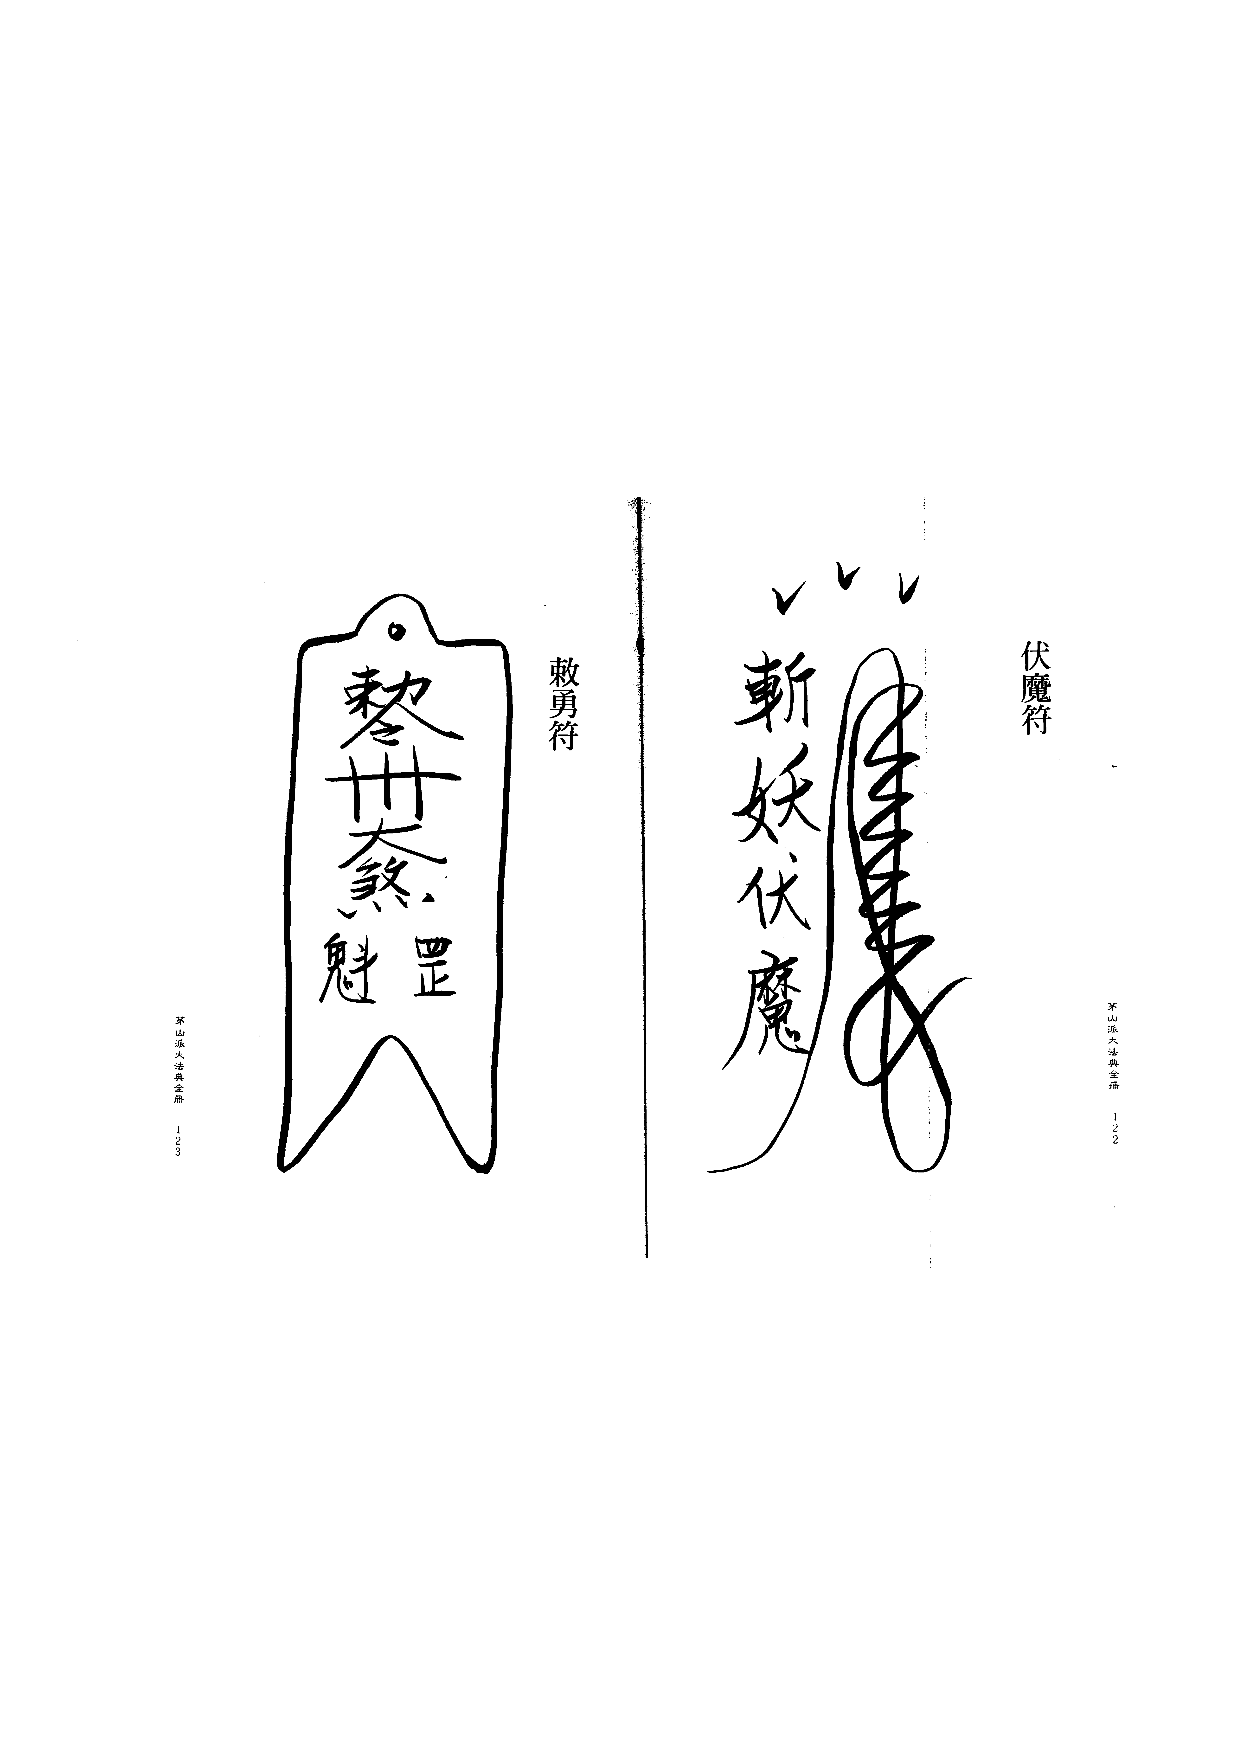 伏魔符
斬妖伏魔
茅山派大法典全冊 122
敕勇符
煞
魁
罡
茅山派大法典全冊 123